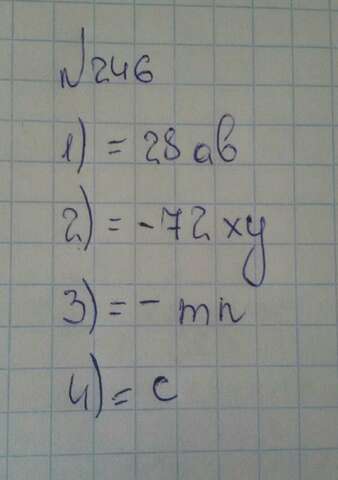 №246
1) = 28ab
2) = -72xy
3) = - mn
4) = c